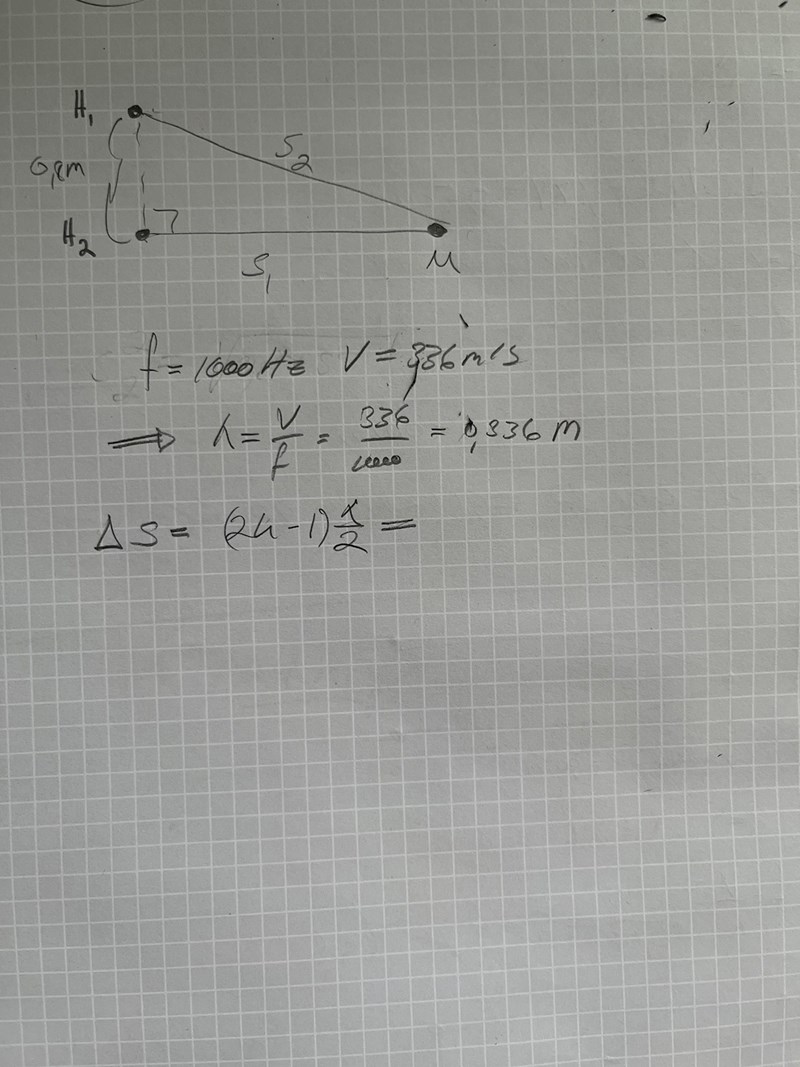 H₁
S₂
0,8m
H₂
S₁
M
f = 1000 Hz V = 336 m/s
⟹ λ = V/f = 336/1000 = 0,336 m
Δs = (2n-1) λ/2 =